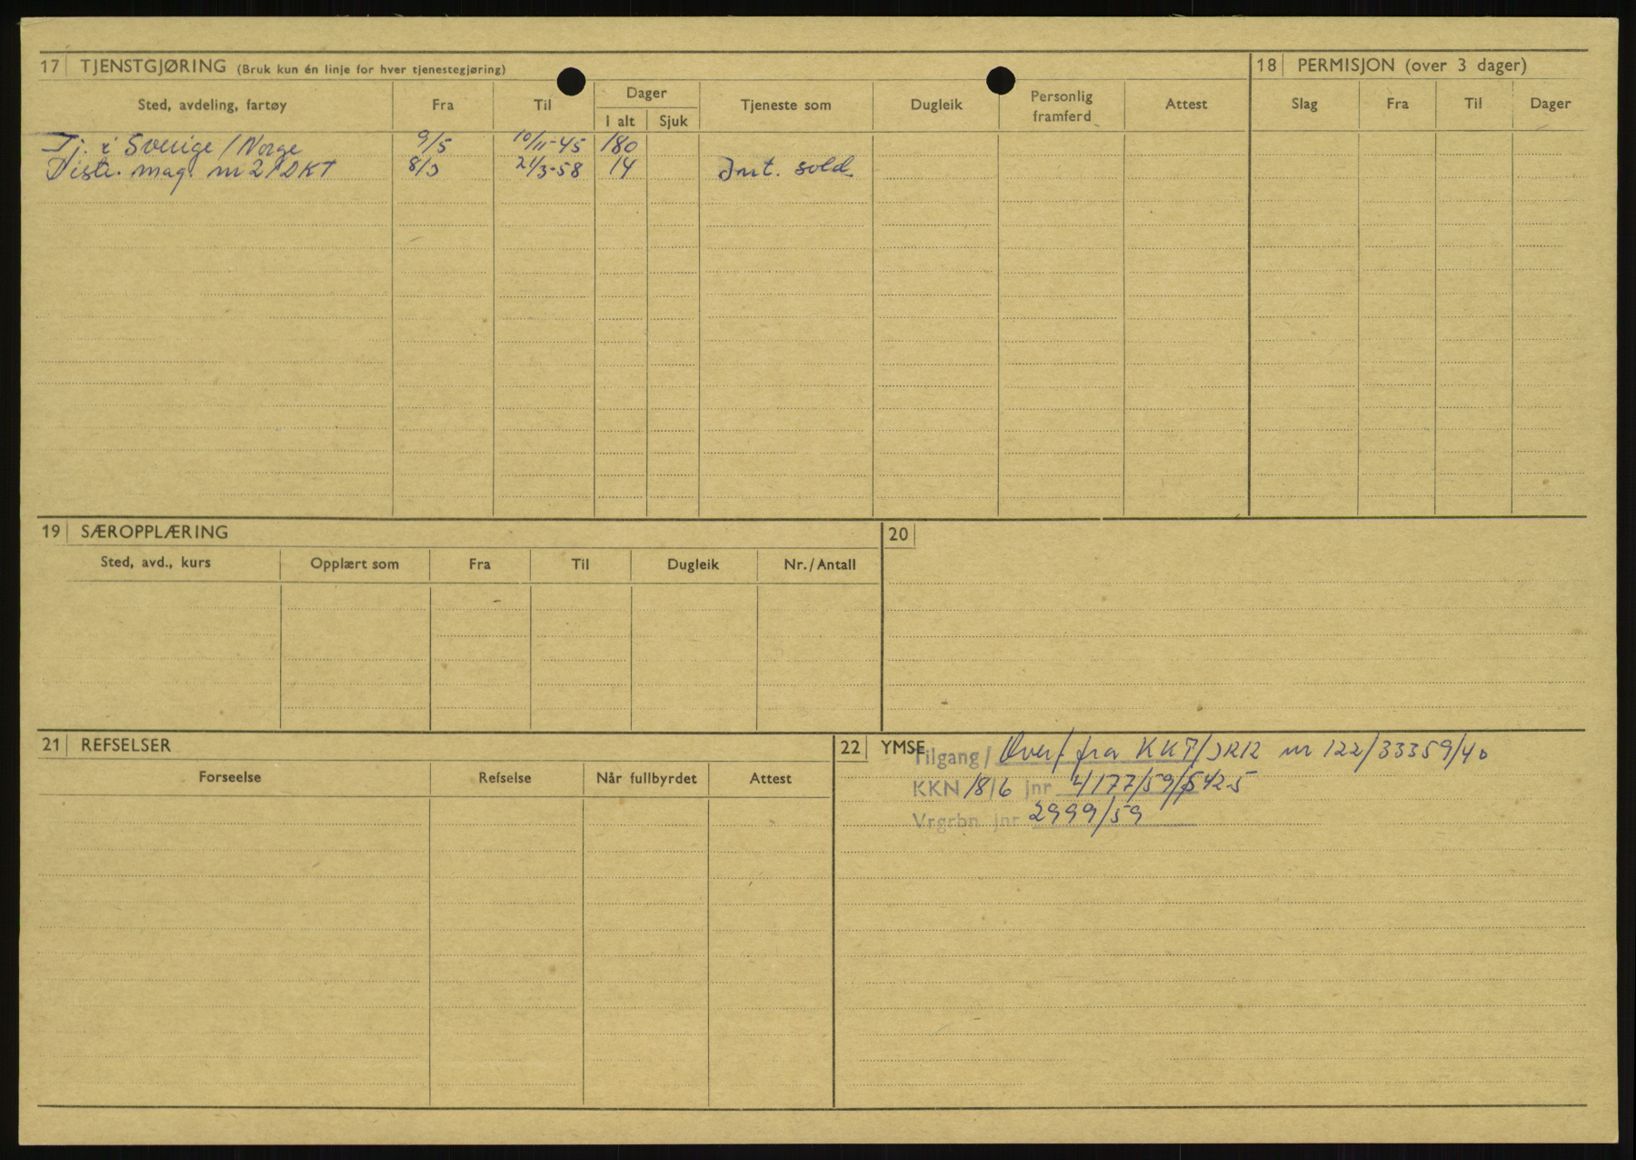 17 TJENSTGJØRING (Bruk kun én linje for hver tjenestegjøring)
Sted, avdeling, fartøy Fra Til Dager I alt Sjuk Tjeneste som Dugleik Personlig framferd Attest
Tj. i Sverige / Norge 9/5 10/11-45 180
Distr. mag. nr 2 / DKT 8/3 21/3-58 14 Int. sold.
18 PERMISJON (over 3 dager)
Slag Fra Til Dager
19 SÆROPPLÆRING
Sted, avd., kurs Opplært som Fra Til Dugleik Nr./Antall
20
21 REFSELSER
Forseelse Refselse Når fullbyrdet Attest
22 YMSE
Tilgang / Overf. fra KKT/IR12 nr 122/33359/40
KKN 18/6 jnr 4177/59/5425
Vrgrbn jnr 2999/59